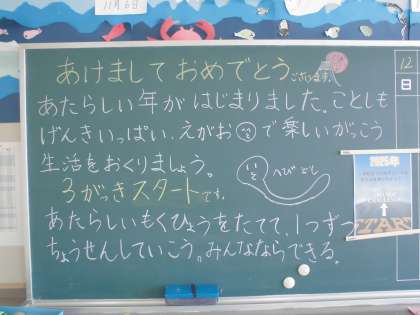 11月6日
あけましておめでとうございます。
あたらしい年がはじまりました。ことしも
げんきいっぱい、えがおで楽しいがっこう
生活をおくりましょう。
3がっきスタートです。
へびどし
あたらしいもくひょうをたてて、1つずつ
ちょうせんしていこう。みんなならできる。
12
日
2025年
START